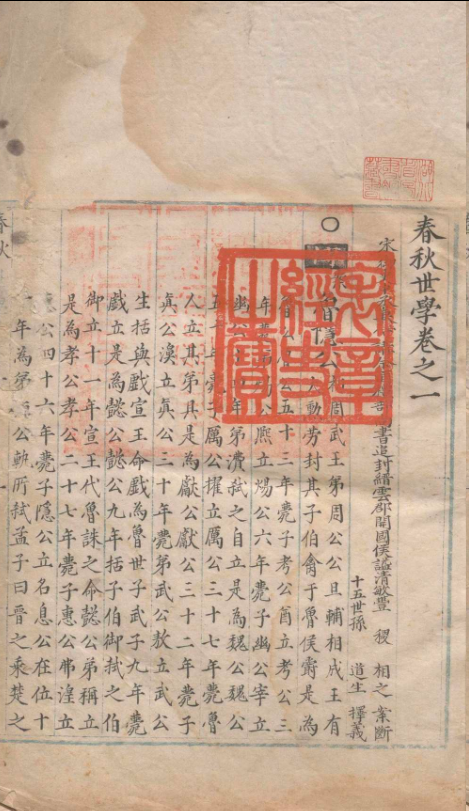 春秋世學卷之一
書追封縉雲郡開國侯謚清敏豐 稷 相之 案斷
十五世孫 道生 釋義
魯隱公 周武王第周公公旦輔相成王有
動勞封其子伯禽于魯侯爵是為
公五十三年薨子考公酋立考公三
年薨 公熙立煬公六年薨子幽公宰立
幽公 年第濞弒之自立是為魏公魏公
五十年薨子厲公擢立厲公三十七年薨魯
人立其第具是為獻公獻公三十二年薨子
真公濞立真公三十年薨第武公敖立武公
生括與戲宣王命戲為魯世子武子九年薨
戲立是為懿公懿公九年括子伯御弒之伯
御立十一年宣王代魯誅之命懿公弟稱立
是為孝公孝公二十七年薨子惠公弗湟立
公四十六年薨子隱公立名息公在位十
年為第 公軌所弒孟子曰晉之乘楚之
春秋
表章經史之寶